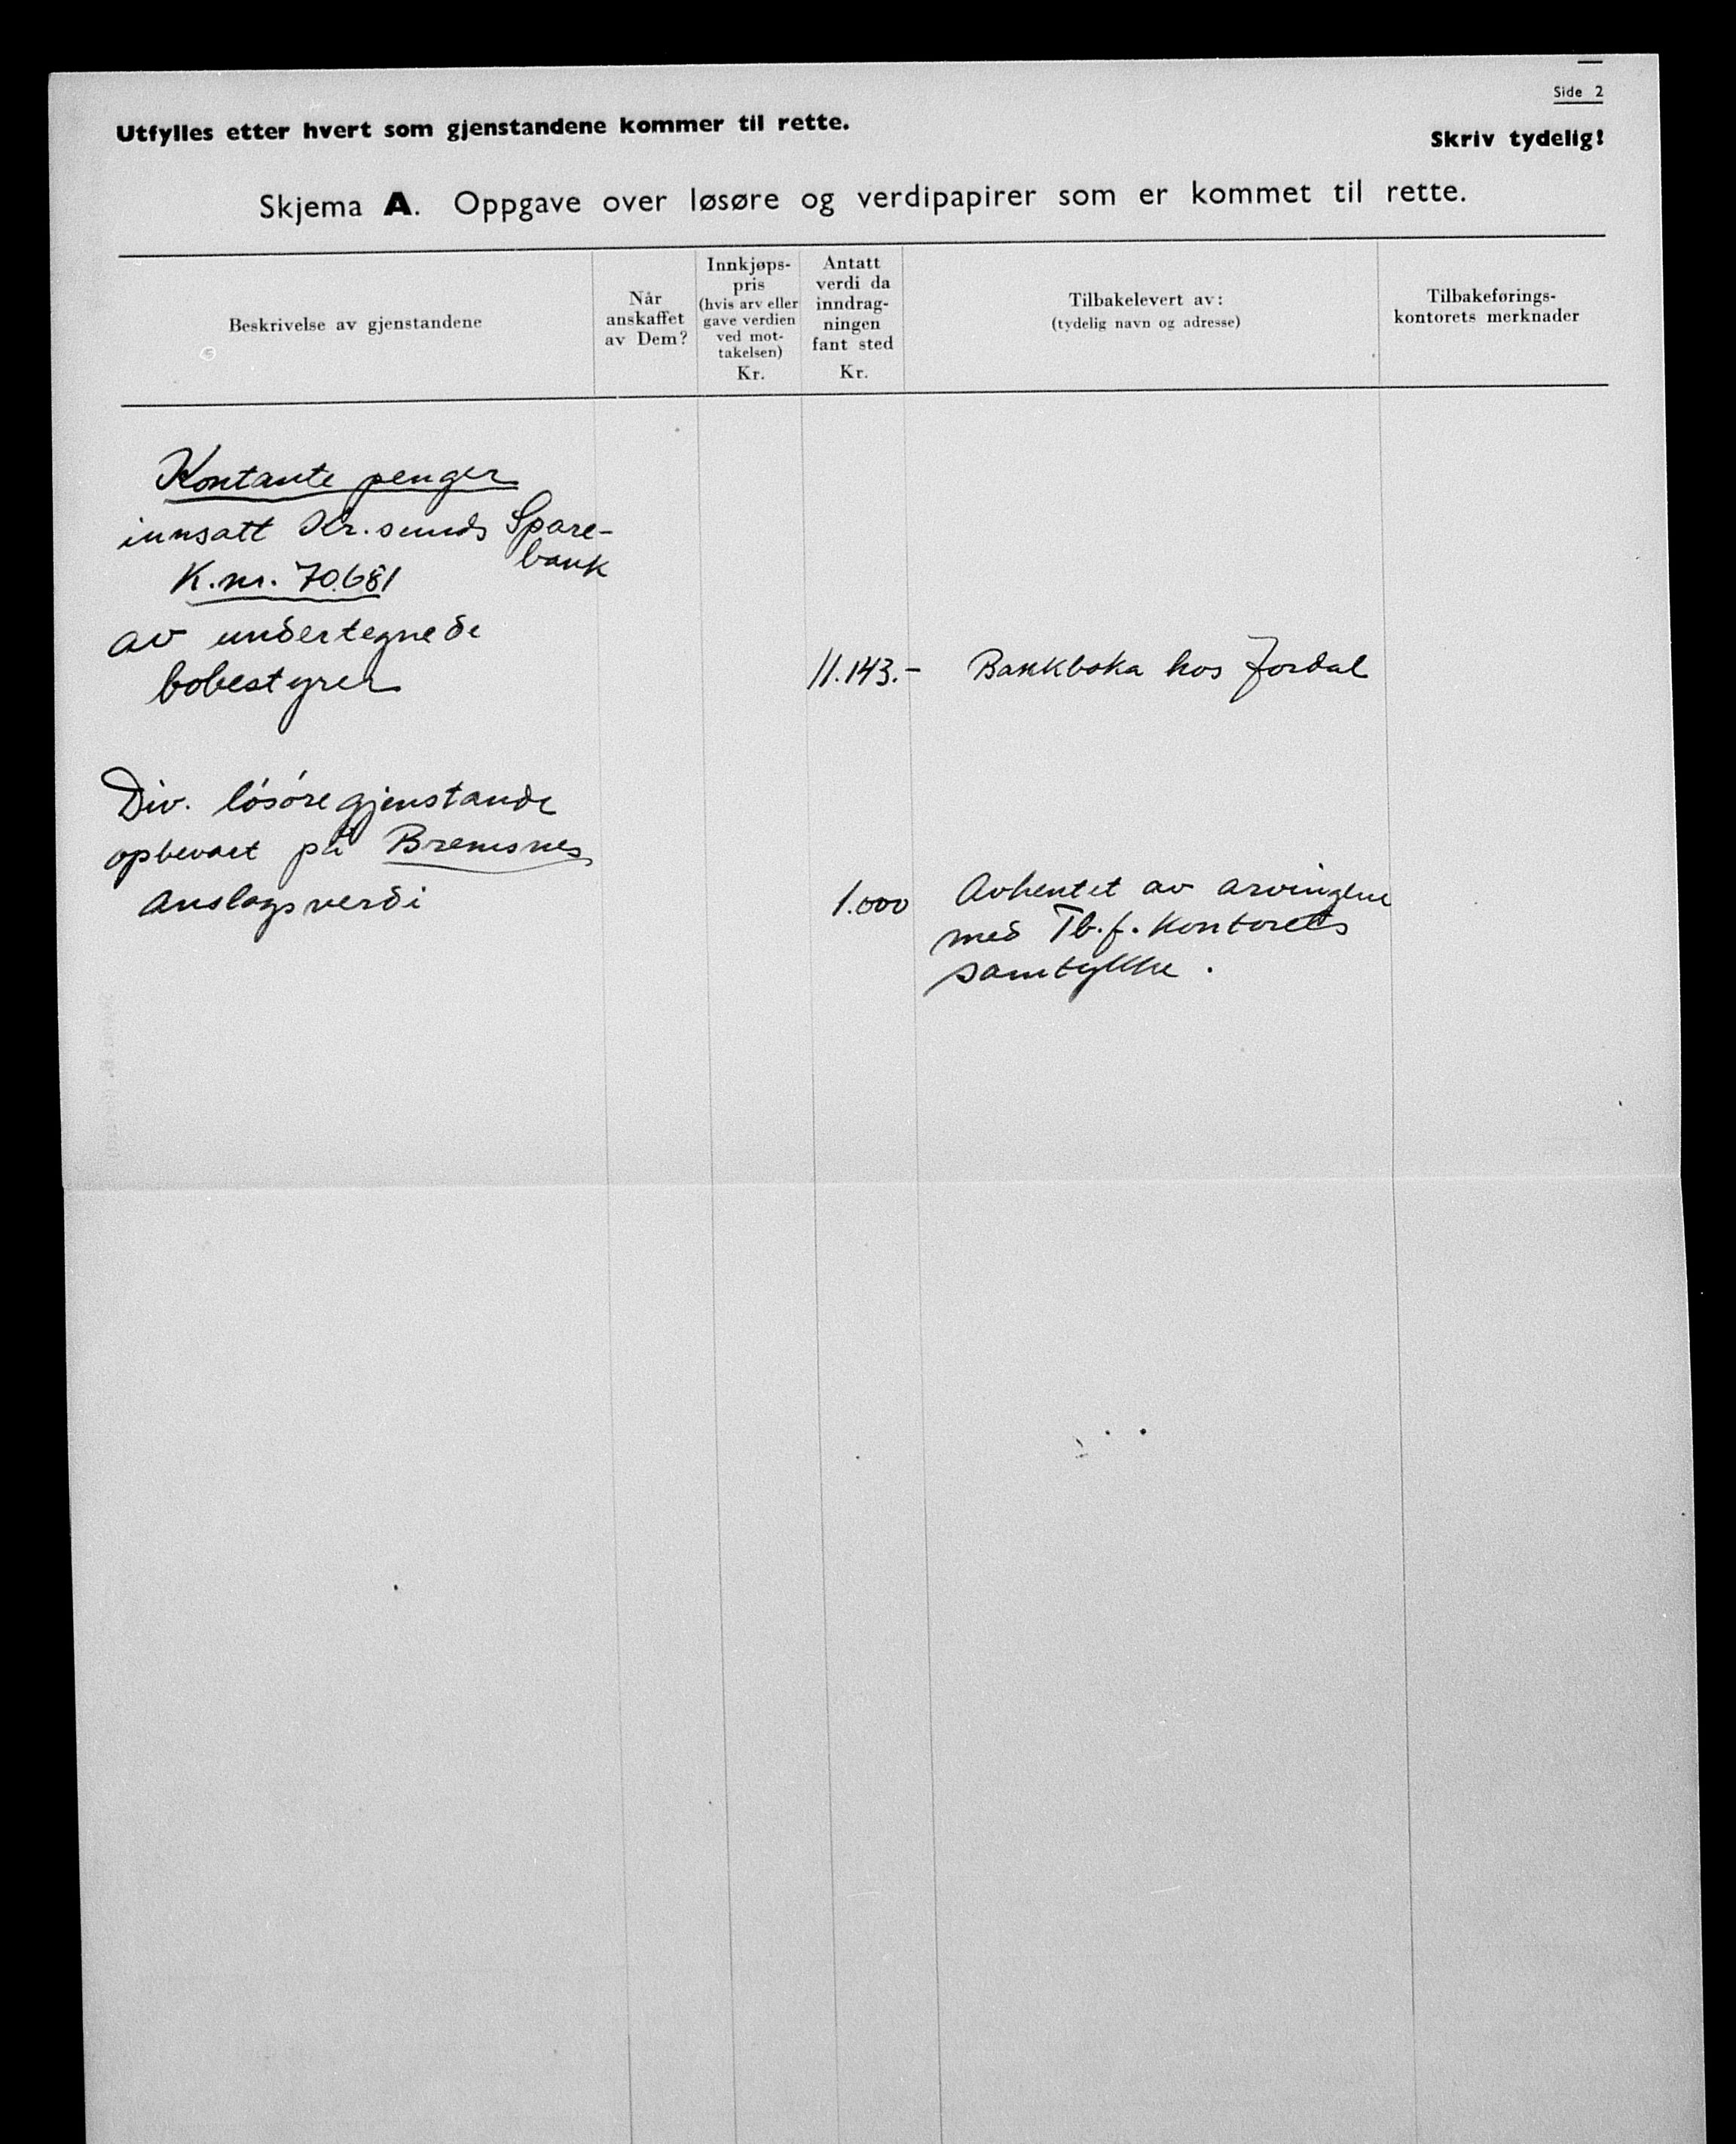 Side 2
Utfylles etter hvert som gjenstandene kommer til rette.
Skriv tydelig!
Skjema A. Oppgave over løsøre og verdipapirer som er kommet til rette.
Beskrivelse av gjenstandene
Når
anskaffet
av Dem?
Innkjøps-
pris
(hvis arv eller
gave verdien
ved mot-
takelsen)
Kr.
Antatt
verdi da
inndrag-
ningen
fant sted
Kr.
Tilbakelevert av:
(tydelig navn og adresse)
Tilbakeførings-
kontorets merknader
Kontante penger
innsatt Kr.sunds Spare-
bank
K.nr. 70681
av undertegnede
bobestyrer
11.143.- Bankboka hos Jordal
Div. løsøregjenstande
opbevart på Bremsnes
Anslagsverdi
1.000
Avhentet av arvingene
med Tb.f. kontorets
samtykke.